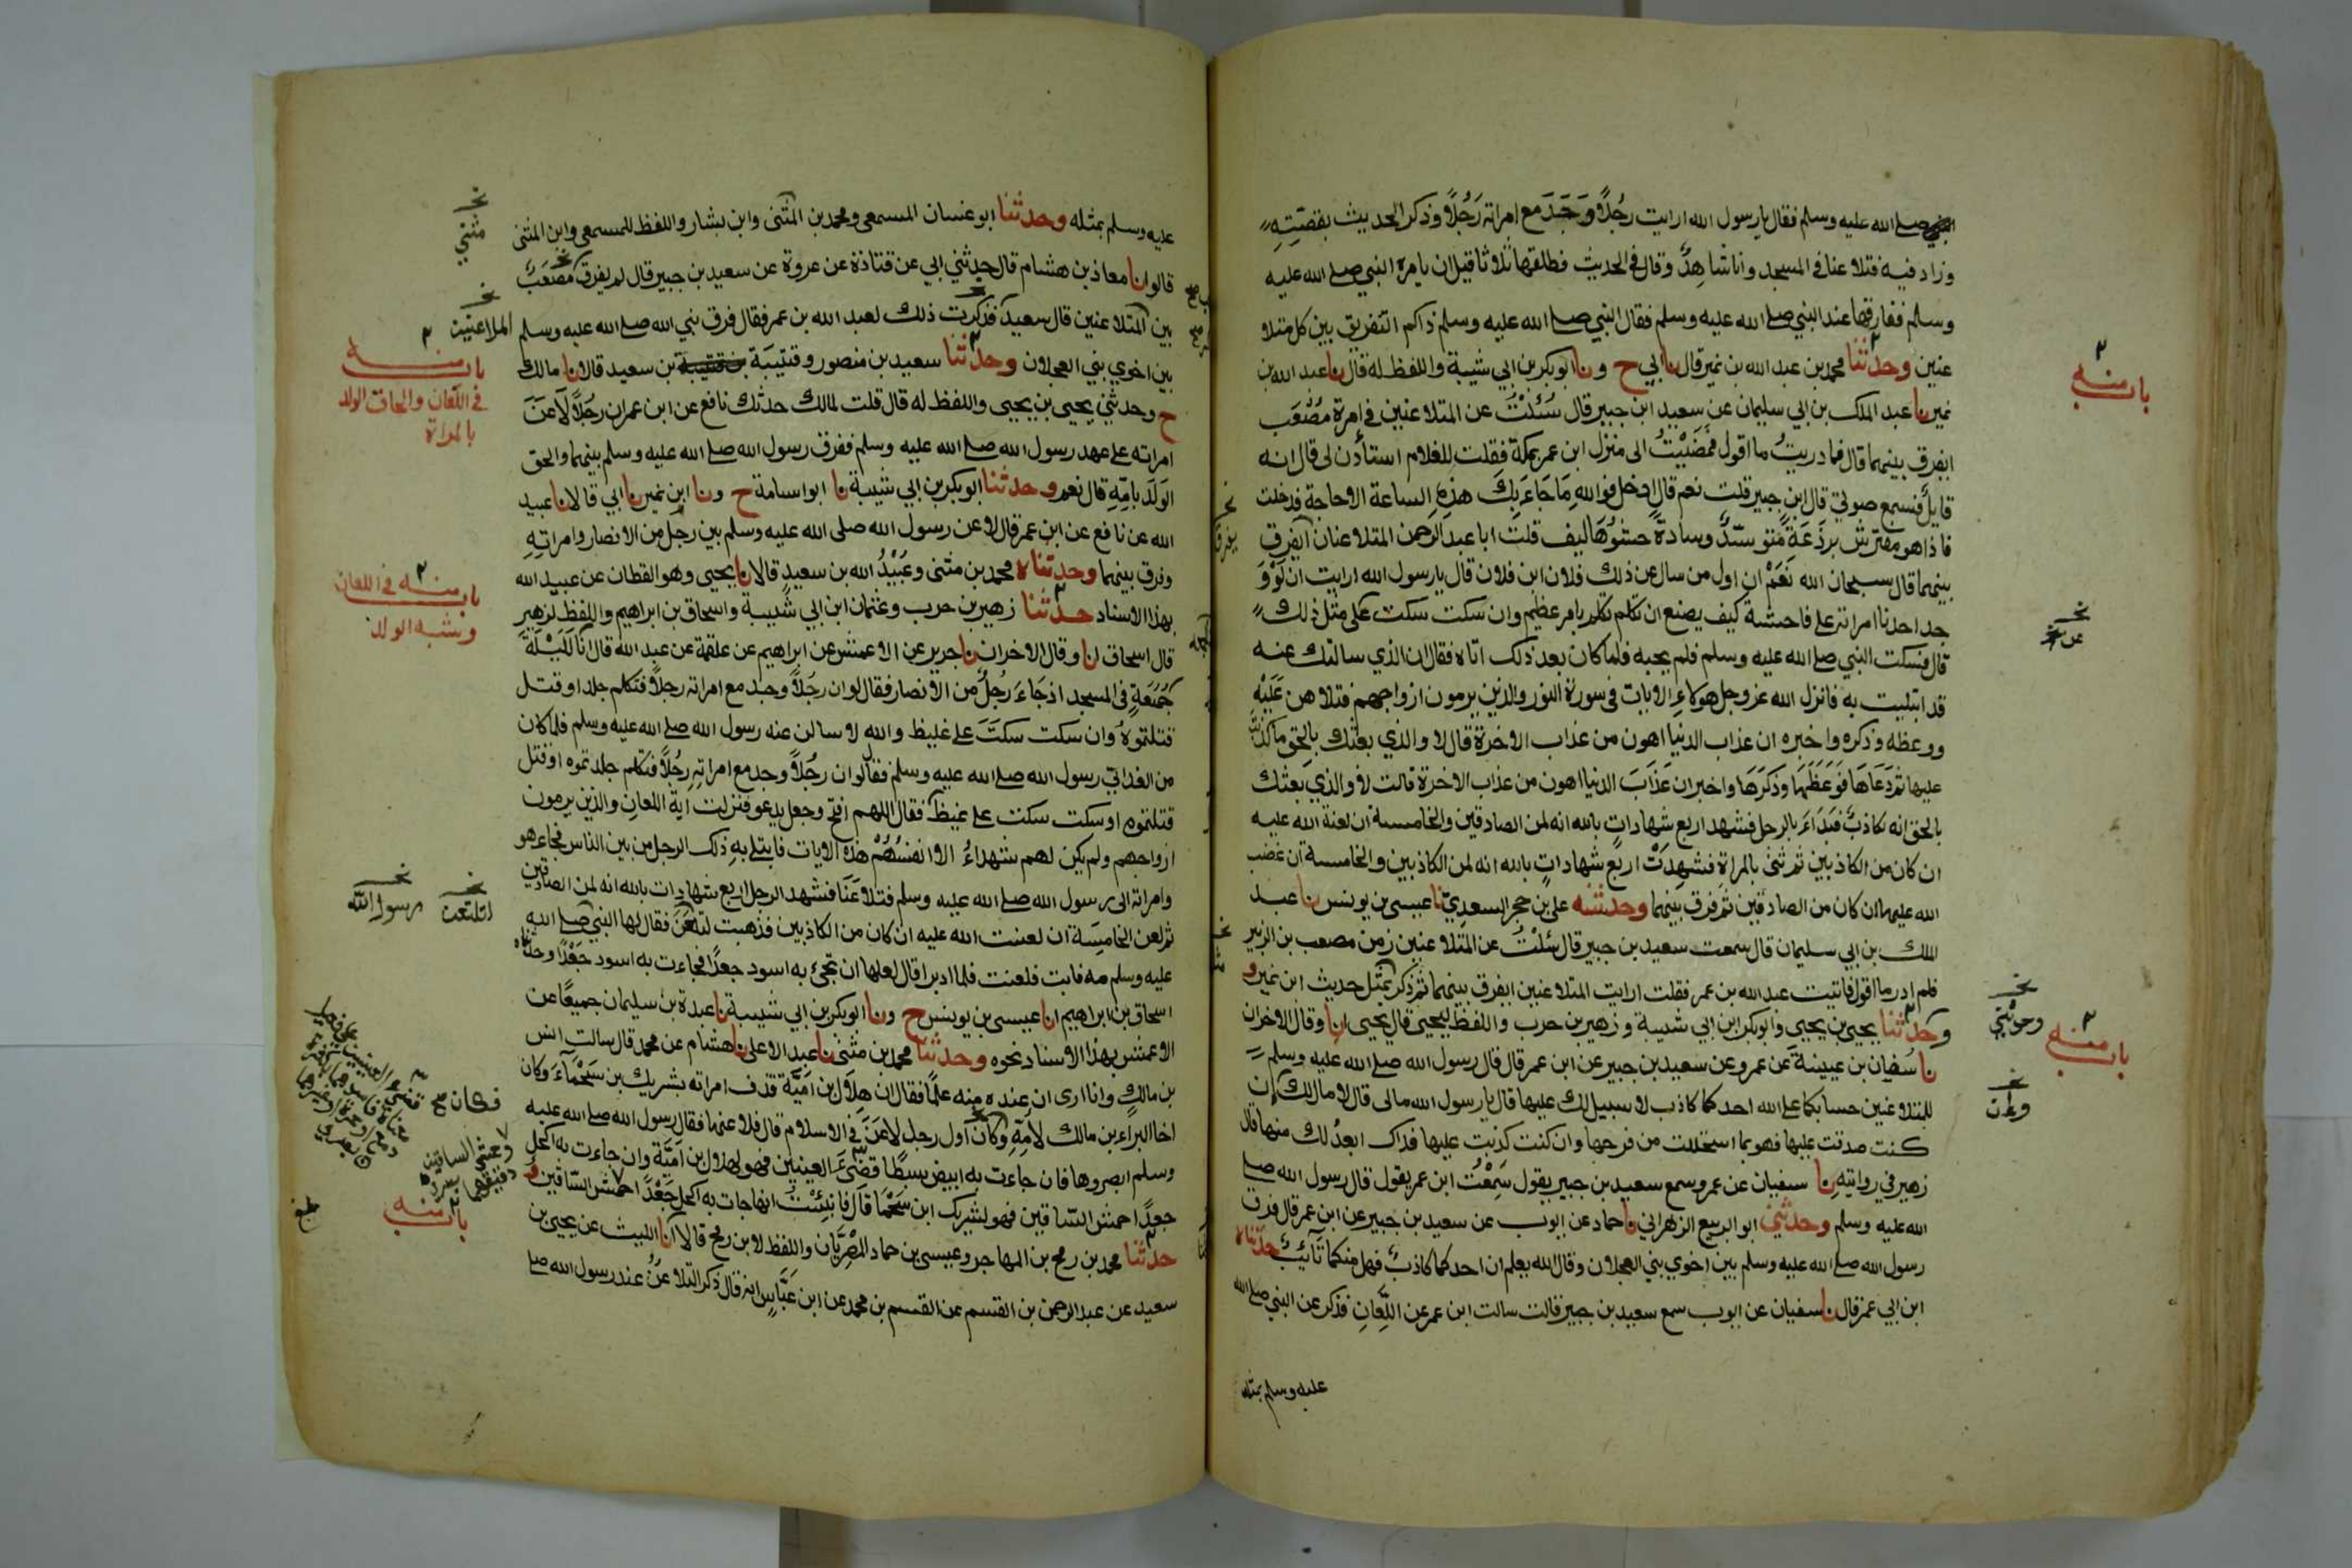 صلے الله عليه وسلم فقال يا رسول الله ارايت رجُلاً وَجَدَ مع امراته رَجُلاً وذكر الحديث بقصّتِهِ
وزاد فيه فتلاعنا في المسجد وانا شاهِدٌ وقال في الحديث فطلقها ثلاثا قبل ان يامره النبي صلے الله عليه
وسلم ففارقها عند النبي صلے الله عليه وسلم فقال النبي صلے الله عليه وسلم ذاكم التفريق بين كل متلا
عنين وحدثنا محمد بن عبد الله بن نمير قال نا ابي ح ونا ابو بكر بن ابي شيبة واللفظ له قال نا عبد الله بن
نمير نا عبد الملك بن ابي سليمان عن سعيد ابن جبير قال سُئلْتُ عن المتلاعنين في امرة مُصْعَب
ايفرق بينهما قال فما دريتُ ما اقول فمضَيْتُ الى منزل ابن عمر بمكة فقلت للغلام استأذن لى قال انه
قايلٌ فسمع صوتي قال ابن جبير قلت نعم قال ادخل فوالله مَا جَاءَ بِكَ هذِهِ الساعة الا حاجة فدخلت
فاذا هو مفترش برذَعَةً متوسّدٌ وسادةً حشوُهَا ليف قلت ابا عبد الرحمن المتلاعنان ايفرق
بينهما قال سبحان الله نَعَمْ ان اول من سال عن ذلك فلان ابن فلان قال يا رسول الله ارايت ان لَوْ وَ
جد احدنا امراته على فاحشة كيف يصنع ان تكلم تكلم بامر عظيم وان سكت سكت على مثل ذلك
قال فسكت النبي صلے الله عليه وسلم فلم يجبه فلما كان بعد ذلك اتاه فقال ان الذي سالتك عنه
قد ابتليت به فانزل الله عز وجل هؤلاءِ الايات في سورة النور والذين يرمون ازواجهم فتلاهن عَلَيْهِ
ووعظه وذكره واخبره ان عذاب الدنيا اهون من عذاب الاخرة قال لا والذي بعثك بالحق ما كذبت
عليها ثم دَعَاهَا فَوَعَظَهَا وَذكَّرَهَا واخبر ان عَذَابَ الدنيا اهون من عذاب الاخرة قالت لا والذي بعثك
بالحق انه لكاذبٌ فبدَاءَ بالرجل فشهد اربع شهاداتٍ بالله انه لمن الصادقين والخامسة ان لعنة الله عليه
ان كان من الكاذبين ثم ثنى بالمراة فشهِدتْ اربع شهاداتٍ بالله انه لمن الكاذبين والخامسة ان غضب
الله عليها ان كان من الصادقين ثم فرق بينهما وحدثنيه على بن حجر السعدِيّ نا عيسى بن يونس نا عبد
الملك بن ابي سليمان قال سمعت سعيد بن جبير قال سُئلْتُ عن المتلاعنين زمن مصعب بن الزبير
فلم ادر ما اقول فاتيت عبد الله بن عمر فقلت ارايت المتلاعنين ايفرق بينهما ثم ذكر بمثل حديث ابن نمير و
وحدثنا يحيى بن يحيى وابو بكر ابن ابي شيبة وزهير بن حرب واللفظ ليحيى قال يحيى انا وقال الاخران
نا سُفيان بن عيينة عن عمرو عن سعيد بن جبير عن ابن عمر قال قال رسول الله صلے الله عليه وسلم
للمتلاعنين حسابكما على الله احدكما كاذب لا سبيل لك عليها قال يا رسول الله مالى قال لا مال لك ان
كنت صدقت عليها فهو بما استحللت من فرجها وان كنت كذبت عليها فذاك ابعدُ لك منها قال
زهير في روايتِهِ نا سفيان عن عمرو سمع سعيد بن جبير يقول سَمِعْتُ ابن عمر يقول قال رسول الله صلے
الله عليه وسلم وحدثني ابو الربيع الزهراني نا حماد عن ايوب عن سعيد بن جبير عن ابن عمر قال فرق
رسول الله صلے الله عليه وسلم بين اخوي بني العجلان وقال الله يعلم ان احدكما كاذبٌ فهل منكما تَائِبٌ حدثناه
ابن ابي عمر قال نا سفيان عن ايوب سمع سعيد بن جبير قالت سالت ابن عمر عن اللِّعانِ فذكر عن النبي صلے الله
عليه وسلم بمثله
باب منه
عن
وحدثني
باب منه
وان
عليه وسلم بمثله وحدثنا ابو غسان المسمعى ومحمد بن المثنى وابن بشار واللفظ للمسمعى وابن المثنى
قالوا نا معاذ بن هشام قال حدثني ابي عن قتادة عن عروة عن سعيد بن جبير قال لم يفرق مُصْعَبٌ
بين المتلاعنين قال سعيد فذكرت ذلك لعبد الله بن عمر فقال فرق نبي الله صلے الله عليه وسلم
بين اخوي بني العجلان وحدثنا سعيد بن منصور وقتيبَة بن سعيد قالا نا مالك
ح وحدثني يحيى بن يحيى واللفظ له قال قلت لمالك حدثك نافع عن ابن عمر ان رجُلاً لَاعَنَ
امراته على عهد رسول الله صلے الله عليه وسلم ففرق رسول الله صلے الله عليه وسلم بينهما والحق
الوَلَدَ بامِّهِ قال نعم وحدثنا ابو بكر بن ابي شيبة نا ابو اسامة ح ونا ابن نمير نا ابي قالا نا عبيد
الله عن نافع عن ابن عمر قال لاعن رسول الله صلى الله عليه وسلم بين رجل من الانصار وامراتِهِ
وفرق بينهما وحدثناه محمد بن مثنى وعُبَيْدُ الله بن سعيدٍ قالا نا يحيى وهو القطان عن عبيد الله
بهذا الاسناد حدثنا زهير بن حرب وعثمان ابن ابي شيبة واسحاق بن ابراهيم واللفظ لزهير
قال اسحاق انا وقال الاخران نا جرير عن الاعمش عن ابراهيم عن علقمة عن عبد الله قال انا لَلَيْلَةَ
جُمُعَةٍ في المسجد اذ جَاءَ رَجُلٌ من الانصار فقال لو ان رجُلاً وجد مع امراته رجلاً فتكلم جلد او قتل
قتلتموهُ وان سكت سكتَ على غليظ والله لاسالن عنه رسول الله صلے الله عليه وسلم فلما كان
من الغد اتى رسول الله صلے الله عليه وسلم فقال لو ان رجُلاً وجد مع امراتِهِ رجُلاً فتكلم جلدتموه او قتل
قتلتموه او سكت سكت على غيظ فقال اللهم افتح وجعل يدعو فنزلت اية اللعان والذين يرمون
ازواجهم ولم يكن لهم شهداءُ الا انفسُهُمْ هذه الايات فابتلي بهِ ذلك الرجل من بين الناس فجاء هو
وامراته الى رسول الله صلے الله عليه وسلم فتلاعَنَا فشهد الرجل اربع شهادات بالله انه لمن الصادقين
ثم لعن الخامِسَة ان لعنت الله عليه ان كان من الكاذبين فذهبت لتلعَنَ فقال لها النبي صلے الله
عليه وسلم مه فابت فلعنت فلما ادبرا قال لعلها ان تجيء به اسود جعدًا فجاءت به اسود جَعْدًا وحدثناه
اسحاق بن ابراهيم انا عيسى بن يونس ح ونا ابو بكر بن ابي شيبة نا عبدة بن سليمان جميعًا عن
الاعمش بهذا الاسناد نحوه وحدثنا محمد بن مثنى نا عبد الاعلى نا هشام عن محمد قال سالت انس
بن مالكٍ وانا ارى ان عنده منه علمًا فقال ان هِلَالَ بن امَيَّة قذف امراته بشريك بن سَحْمَاءَ وكان
اخا البراء بن مالك لأمِّهِ وكان اول رجل لَاعَنَ في الاسلام قال فلاعنها فقال رسول الله صلے الله عليه
وسلم ابصروها فان جاءت به ابيض سبطًا قضيءَ العينين فهو لهلال بن اميَّة وان جاءت به اكحل
جعدًا احمش السّاقين فهو لشريك ابن سَحْمَا قَالَ فانبِئْتُ انها جات به اكحل جَعْدًا احمش السّاقين و
حدثنا محمد بن رمح بن المهاجر وعيسى بن حماد المِصْريَّان واللفظ لابن رمح قالا انا الليث عن يحيى بن
سعيد عن عبد الرحمن بن القسم عن القسم بن محمد عن ابن عَبَّاسٍ انه قال ذكر التلاعنُ عند رسول الله صلے
مثنى
المتلاعنين
باب منه
في اللعان والحاق الولد
بالمراة
باب منه في اللعان
وشبه الولد
لتلتعن
رسول الله
فكان
باب منه